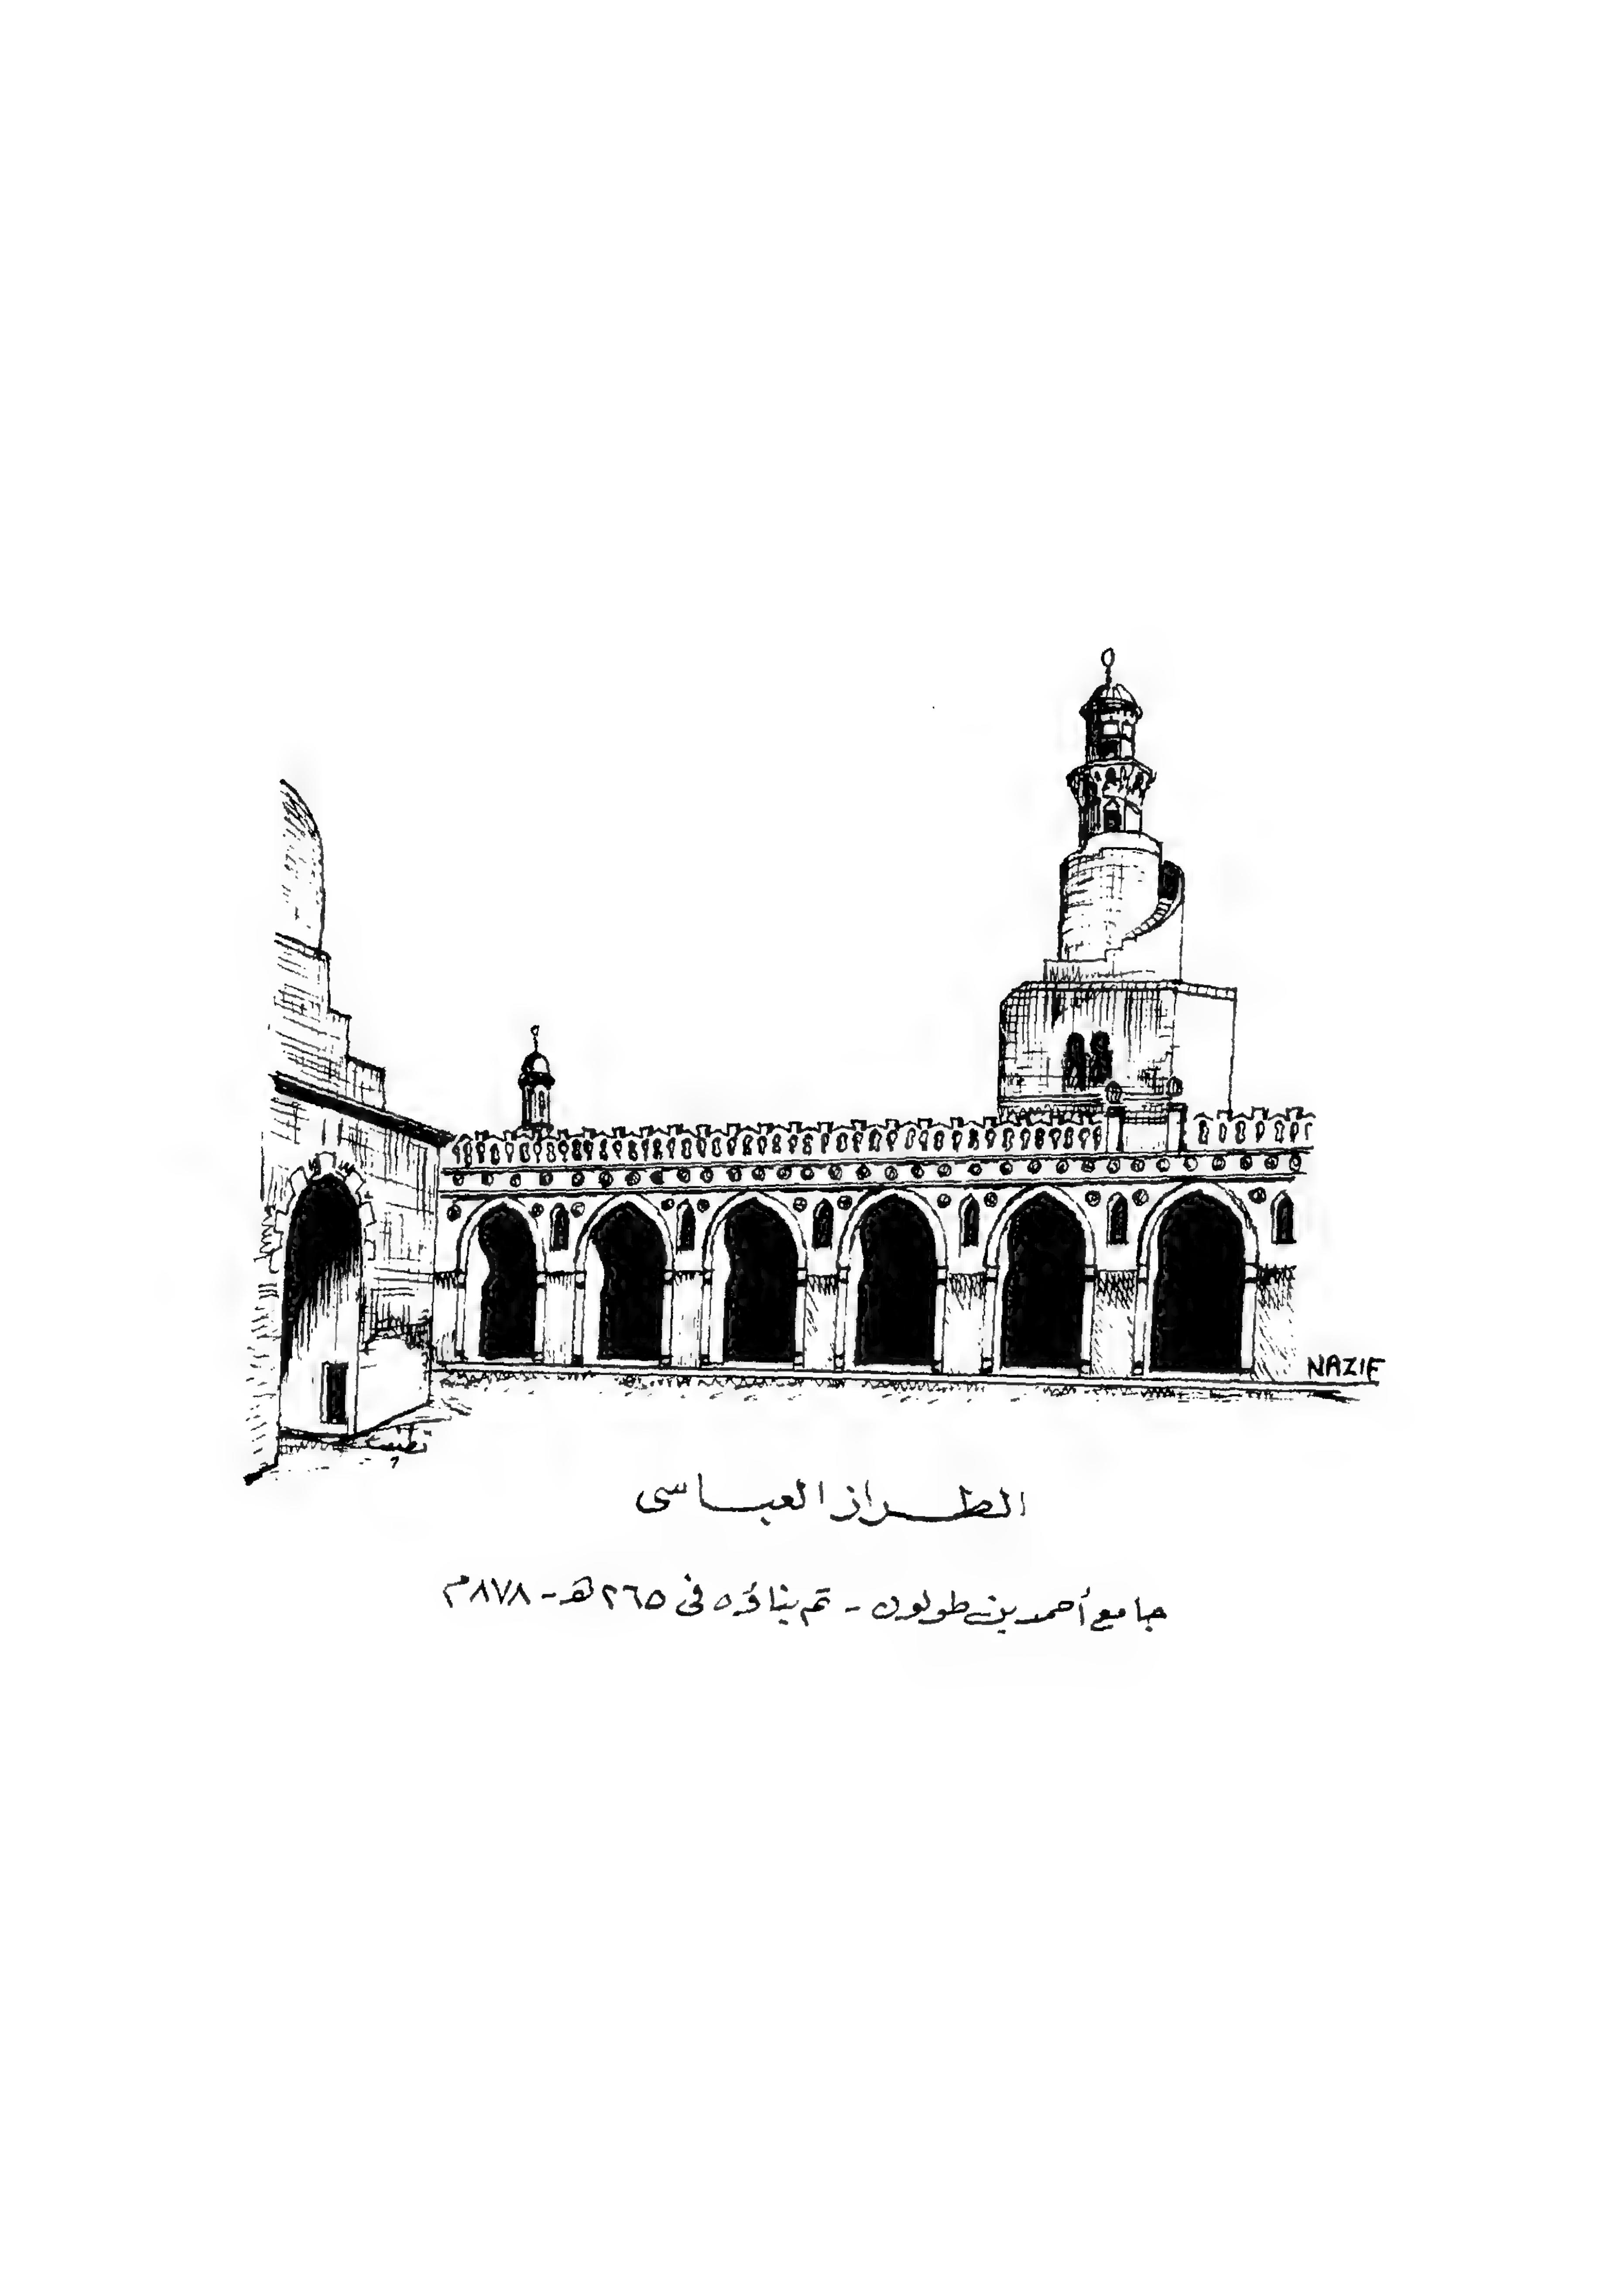 NAZIF
نظيف
الطراز العباسى
جامع أحمد بن طولون - تم بناؤه فى ٢٦٥هـ - ٨٧٨م